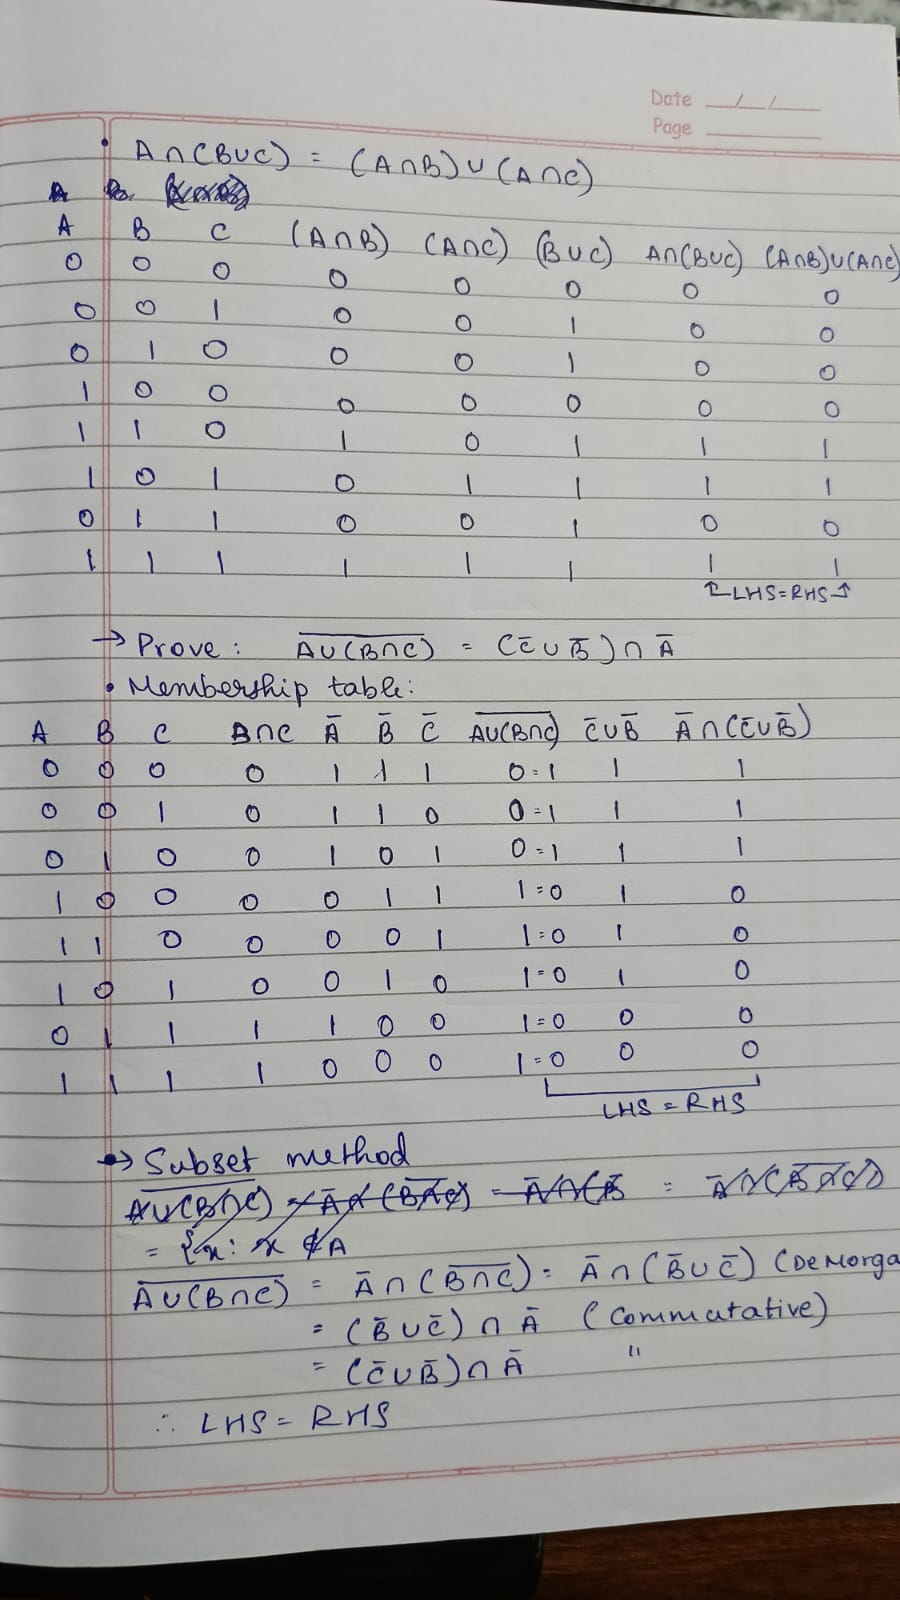 Date __/__/__
Page ____
• A∩(B∪C) = (A∩B)∪(A∩C)
A B
A B C (A∩B) (A∩C) (B∪C) A∩(B∪C) (A∩B)∪(A∩C)
0 0 0 0 0 0 0 0
0 0 1 0 0 1 0 0
0 1 0 0 0 1 0 0
1 0 0 0 0 0 0 0
1 1 0 1 0 1 1 1
1 0 1 0 1 1 1 1
0 1 1 0 0 1 0 0
1 1 1 1 1 1 1 1
↑LHS=RHS↑
→ Prove : \overline{A∪(B∩C)} = (C̄∪B̄)∩Ā
• Membership table:
A B C B∩C Ā B̄ C̄ \overline{A∪(B∩C)} C̄∪B̄ Ā∩(C̄∪B̄)
0 0 0 0 1 1 1 0=1 1 1
0 0 1 0 1 1 0 0=1 1 1
0 1 0 0 1 0 1 0=1 1 1
1 0 0 0 0 1 1 1=0 1 0
1 1 0 0 0 0 1 1=0 1 0
1 0 1 0 0 1 0 1=0 1 0
0 1 1 1 1 0 0 1=0 0 0
1 1 1 1 0 0 0 1=0 0 0
LHS = RHS
→ Subset method
\overline{A∪(B∩C)}
= {x: x ∉ A
\overline{A∪(B∩C)} = Ā∩(\overline{B∩C}) = Ā∩(B̄∪C̄) (DeMorga
= (B̄∪C̄)∩Ā (Commutative)
= (C̄∪B̄)∩Ā "
∴ LHS = RHS